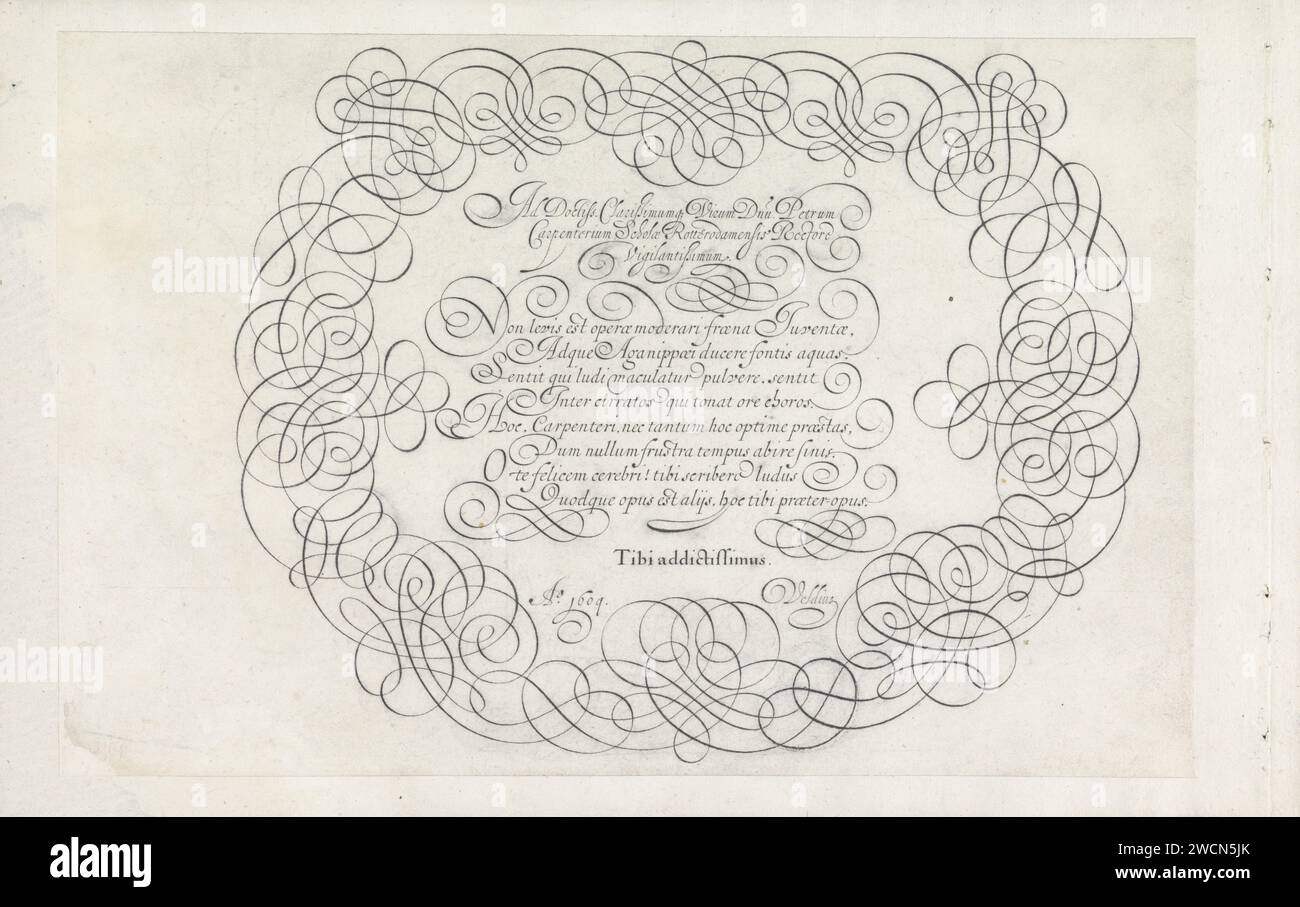 Ad Doctiss. Clarissimumq; Virum Dnũ. Petrum
Carpenterium Scholæ Rotterodamensis Rectorẽ
Vigilantissimum.
Non levis est operæ moderari fræna Iuventæ,
Adque Aganippæi ducere fontis aquas.
Sentit qui ludi maculatur pulvere, sentit
Inter cirratos qui tonat ore choros.
Hoc, Carpenteri, nec tantum hoc optime præstas,
Dum nullum frustra tempus abire sinis.
O te felicem cerebri! tibi scribere ludus
Quodque opus est alijs, hoc tibi præter opus.
Tibi addictissimus.
Aº. 1604. Veldius
alamy
alamy
Image ID: 2WCN5JK
www.alamy.com